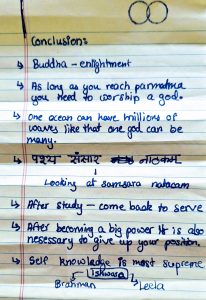 Conclusion:
↳ Buddha - enlightment
↳ As long as you reach parmatma
you need to worship a god.
↳ One ocean can have millions of
waves like that one god can be
many.
↳ पश्य संसार नाटकम्
Looking at samsara natacam
↳ After study - come back to serve
↳ After becoming a big power it is also
necessary to give up your position.
↳ Self knowledge is most supreme
Ishwara
Brahman Leela